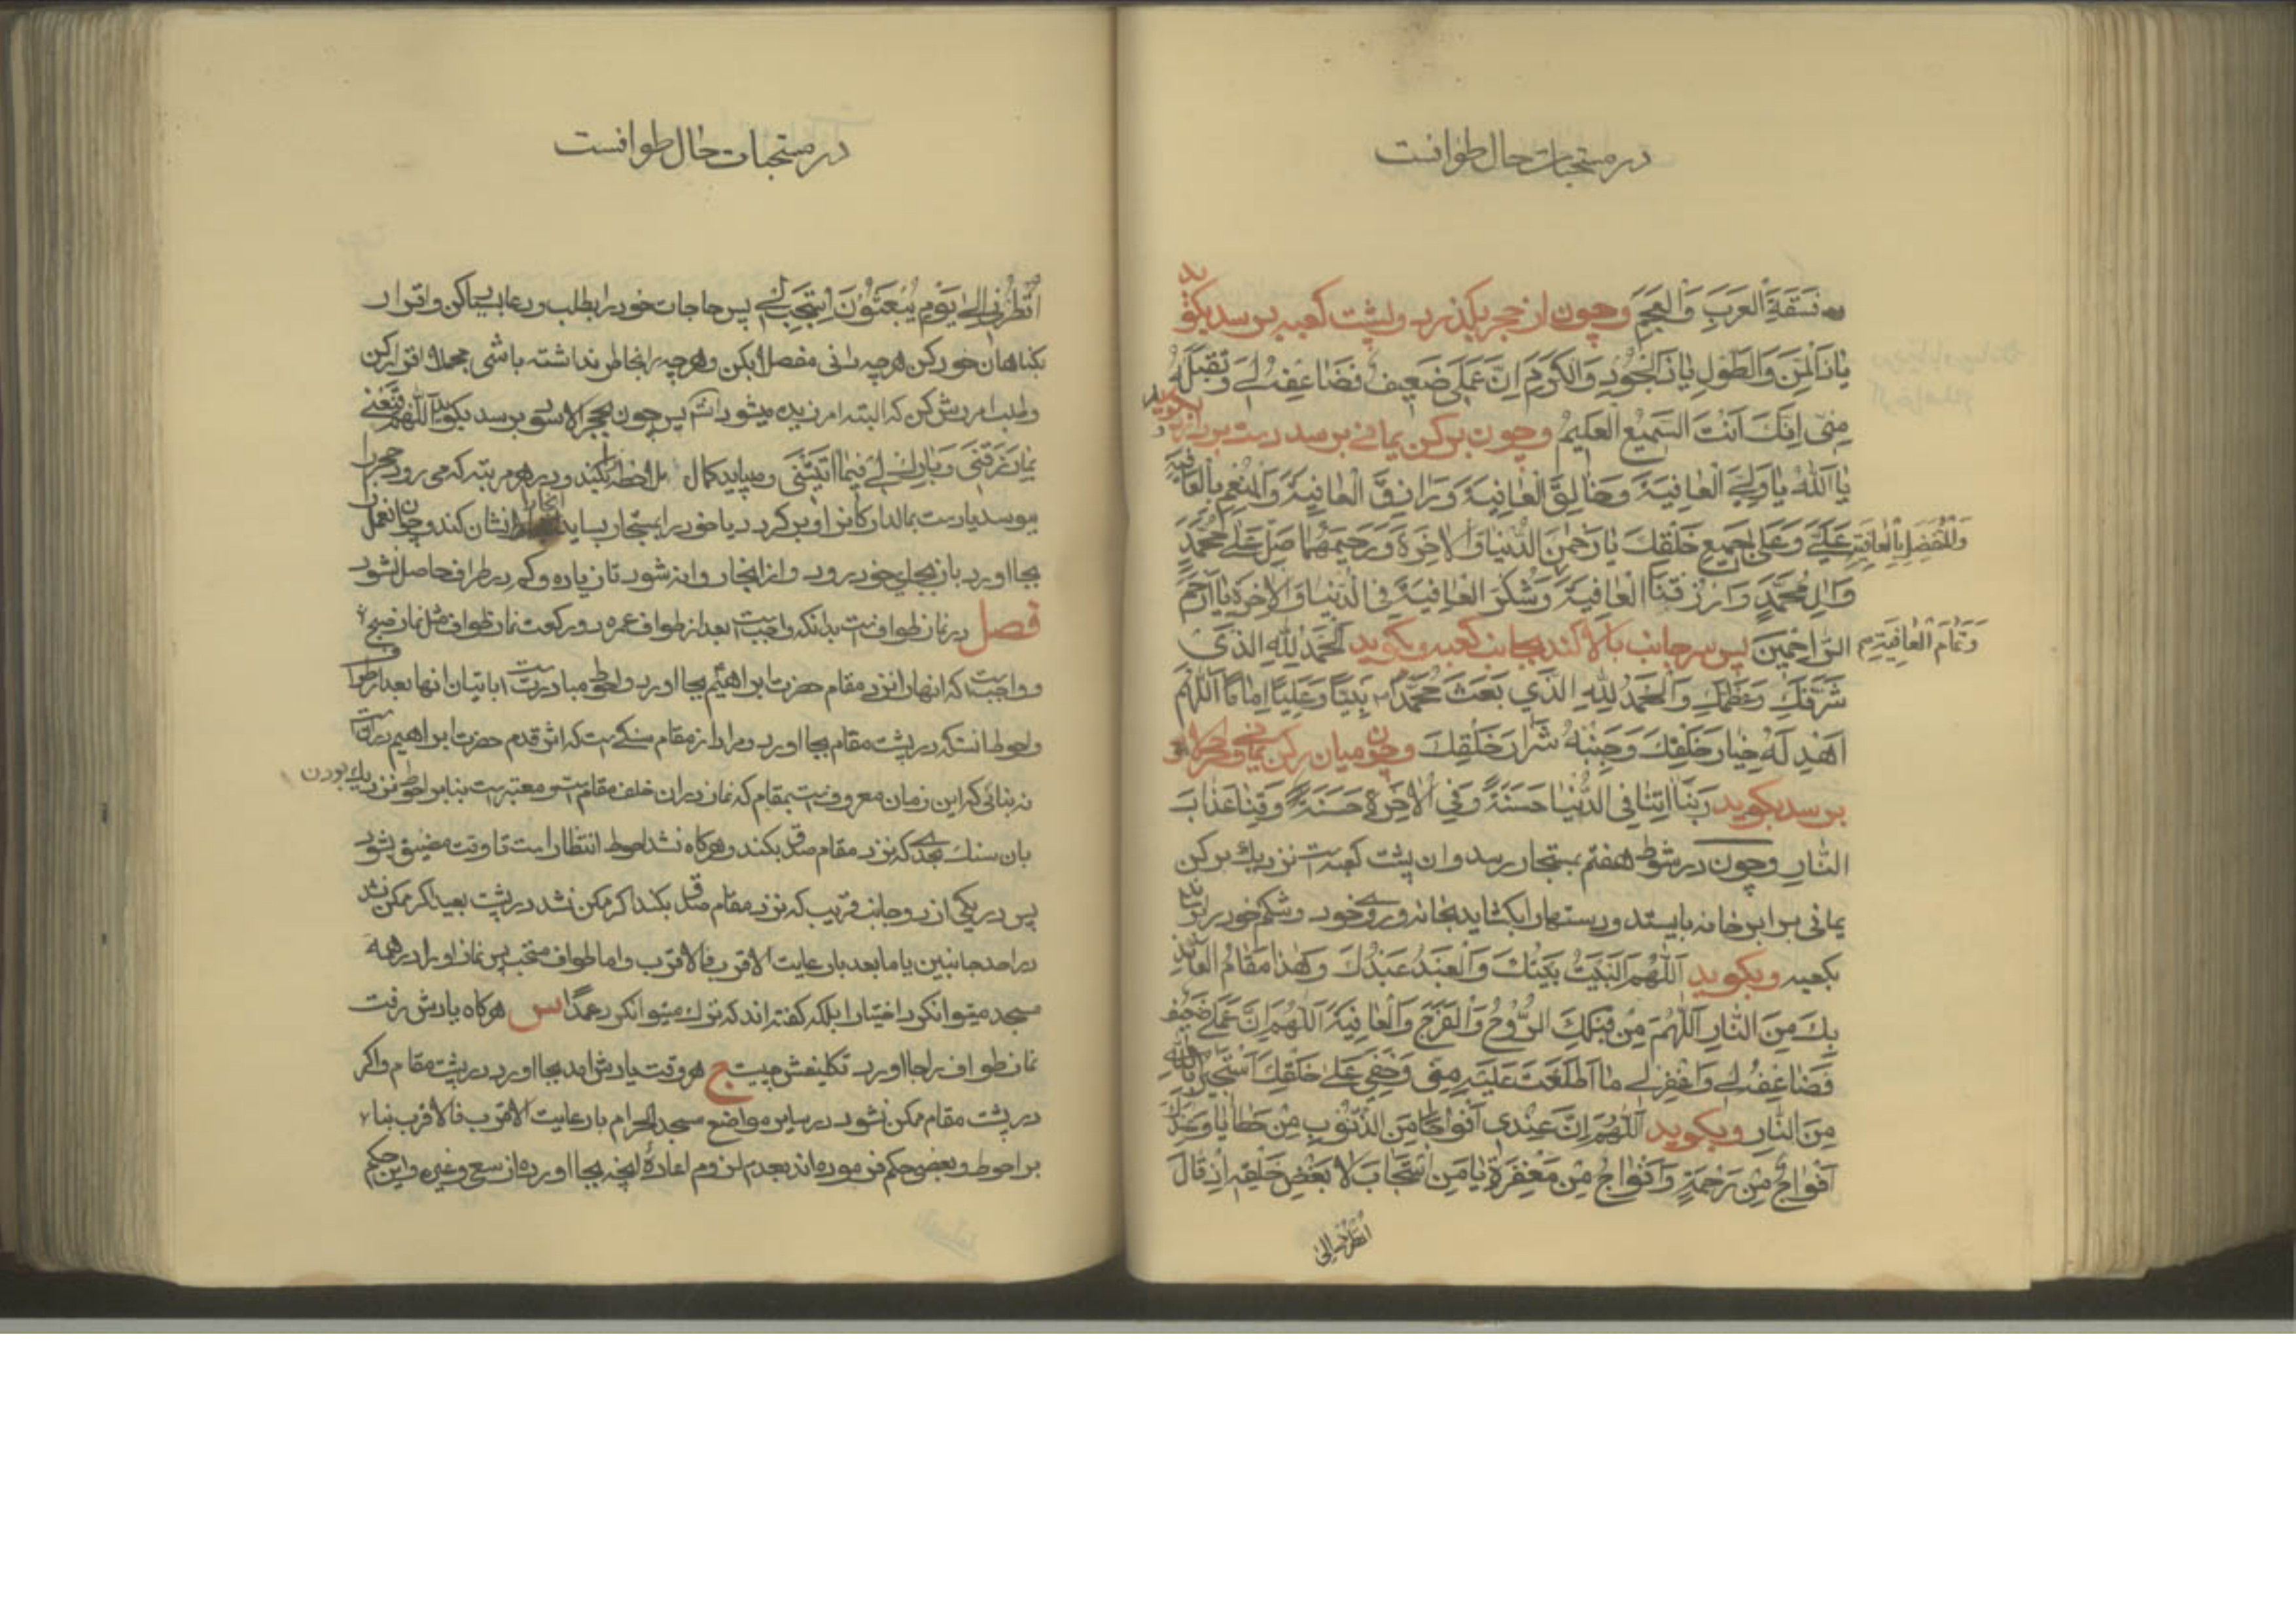 در مستحبات حال طوافست
فسقة العرب و العجم و چون از حجر بگذرد و بپشت کعبه برسد بگوید
یا ذا المن و الطول یا ذا الجود و الکرم ان عملی ضعیف فضاعفه لی و تقبله
منی انک انت السمیع العلیم و چون برکن یمانی برسد دست بردارد و بگوید
یا الله یا ولی العافیة و خالق العافیة و رازق العافیة و المنعم بالعافیة
و المتفضل بالعافیة علی و علی جمیع خلقک یا رحمن الدنیا و الاخرة و رحیمهما صل علی محمد
و ال محمد و ارزقنا العافیة و شکر العافیة فی الدنیا و الاخرة یا ارحم
و تمام العافیة الراحمین پس سر بجانب بالا کند بجانب کعبه و بگوید الحمد لله الذی
شرفک و عظمک و الحمد لله الذی بعث محمدا نبیا و علیا اماما اللهم
اهد له خیار خلقک و جنبه شرار خلقک و چون میان رکن یمانی و حجر
برسد بگوید ربنا اتنا فی الدنیا حسنة و فی الاخرة حسنة و قنا عذاب
النار و چون در شوط هفتم بمستجار رسد و ان پشت کعبه است نزدیک برکن
یمانی برابر خانه بایستد و دستها را بگشاید بخانه و روی خود و شکم خود را
بکعبه و بگوید اللهم البیت بیتک و العبد عبدک و هذا مقام العائذ
بک من النار اللهم من قبلک الروح و الفرج و العافیة اللهم ان عملی ضعیف
فضاعفه لی و اغفر لی ما اطلعت علیه منی و خفی علی خلقک استجیر بالله
من النار و بگوید اللهم ان عندی افواجا من الذنوب من خطایا و عندک
افواج من رحمة و افواج من مغفرة یا من استجاب لابغض خلقه اذ قال
انظرنی الی
در مستحبات حال طوافست
انظرنی الی یوم یبعثون استجب لی پس حاجات خود را بطلب و دعا بسیار کن و اقرار
بگناهان خود کن هرچه دانی مفصلا بکن و هرچه را بخاطر نداشته باشی مجملا اقرار کن
و طلب امرزش کن که البته امرزیده میشود پس چون بحجر الاسود برسد بگوید اللهم قنعنی
بما رزقتنی و بارک لی فیما اتیتنی و میباید کمال ملاحظه را بکند و در هر مرتبه که می رود حجر را
ببوسد یا دست بمالد ارکان را و بر گرد دیا خود را بمستجار بساید انجا را نشان کند و چون انعمل را
بجا اورد بان بجای خود برود و از انجا روانه شود تا زیاده و کم در طواف حاصل نشود
فصل در نماز طوافست بدانکه واجبست بعد از طواف عمره دو رکعت نماز طواف مثل نماز صبح
و واجبست که انها را نزد مقام حضرت ابراهیم بجا اورد و احوط مبادرت است باتیان انها بعد از طواف
و احوط انستکه در پشت مقام بجا اورد و مراد از مقام سنگیست که اثر قدم حضرت ابراهیم در انست
نه بنائی که این زمان معروفست بمقام که نماز در ان خلف مقام است و معتبر است بنابر احوط نزدیک بودن
بان سنگ بحدی که نزد مقام صدق بکند و هرگاه نشد احوط انتظار است تا وقت مضیق بشود
پس در یکی از دو جانب قریب که نزد مقام صدق بکند اگر ممکن نشد در پشت بعید اگر ممکن نشد
در احد جانبین یا ما بعد با رعایت الاقرب فالاقرب و اما طواف مستحب پس نماز او را در همه
مسجد میتوان کرد اختیارا بلکه گفته اند که ترک میتوان کرد عمدا س هرگاه یادش رفت
نماز طواف را بجا اورد تکلیفش چیست ج هر وقت یادش امد بجا اورد در پشت مقام و اگر
در پشت مقام ممکن نشود در سایر مواضع مسجد الحرام با رعایت الاقرب فالاقرب بنا
بر احوط و بعضی حکم فرموده اند بعدم لزوم اعاده انچه بجا اورده از سعی و غیره و این حکم